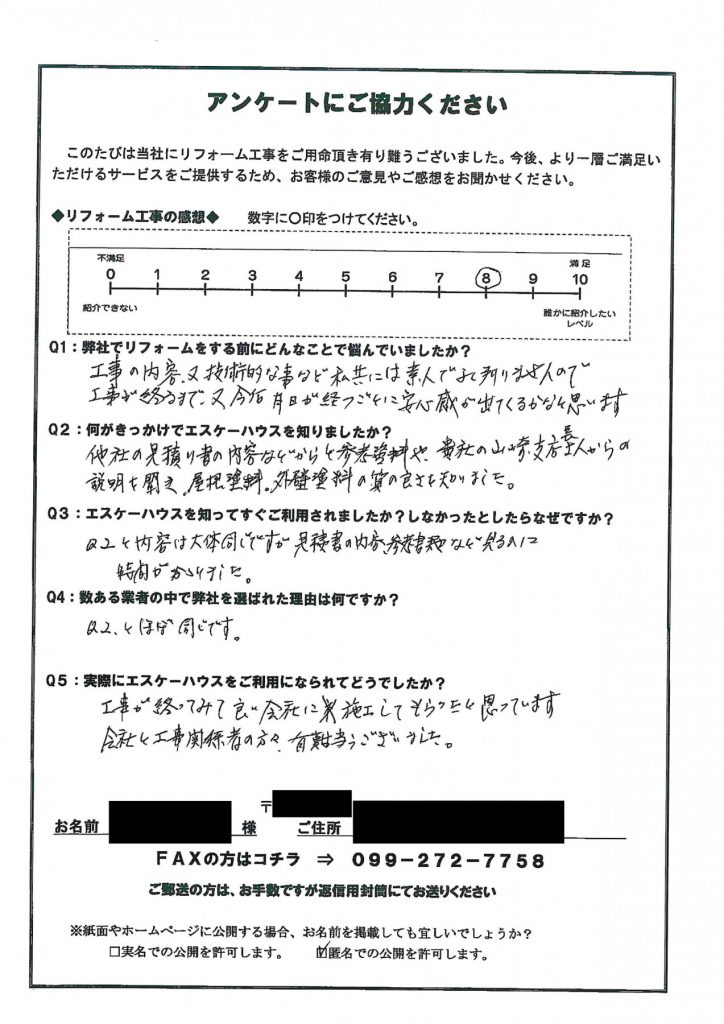 アンケートにご協力ください
このたびは当社にリフォーム工事をご用命頂き有り難うございました。今後、より一層ご満足い
ただけるサービスをご提供するため、お客様のご意見やご感想をお聞かせください。
◆リフォーム工事の感想◆ 数字に〇印をつけてください。
不満足 満足
0 1 2 3 4 5 6 7 8 9 10
紹介できない 誰かに紹介したい
レベル
Q1：弊社でリフォームをする前にどんなことで悩んでいましたか？
工事の内容、又技術的な事など私共には素人でよく判りませんので
工事が終るまで、又今后月日が経つごとに安心感が出てくるかなと思います
Q2：何がきっかけでエスケーハウスを知りましたか？
他社の見積り書の内容などからと参考資料や、貴社の山崎支店長さんからの
説明を聞き、屋根塗料、外壁塗料の質の良さを知りました。
Q3：エスケーハウスを知ってすぐご利用されましたか？しなかったとしたらなぜですか？
Q2と内容は大体同じですが見積書の内容、参考書類など見るのに
時間がかかりました。
Q4：数ある業者の中で弊社を選ばれた理由は何ですか？
Q2、とほぼ同じです。
Q5：実際にエスケーハウスをご利用になられてどうでしたか？
工事が終ってみて良い会社に施工してもらったと思っています
会社と工事関係者の方々、有難うございました。
〒
お名前 様 ご住所
FAXの方はコチラ ⇒ 099-272-7758
ご郵送の方は、お手数ですが返信用封筒にてお送りください
※紙面やホームページに公開する場合、お名前を掲載しても宜しいでしょうか？
□実名での公開を許可します。 ☑匿名での公開を許可します。